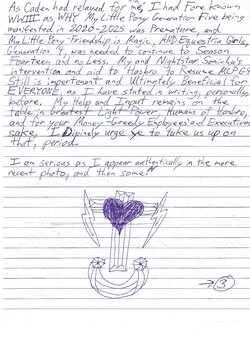 As Caden had relayed for me, I had Fore known
WWIII as WHY My Little Pony Generation Five being
manifested in 2020-2025 was Premature, and
My Little Pony Friendship is Magic, AND Equestria Girls,
Generation 4, was needed to continue to Season
Fourteen aid no Less. My and Nightstar Sonichu's
intervention and aid to Hasbro to Resume MLP G4
Still is important and Ultimately Beneficial for
EVERYONE, as I have stated in writing, personally,
before. My Help and Input remains on the
table in Greatest Light Power. Humans of Hasbro,
and for your Money-Greedy Employees' and Executives'
sake, I Divinely urge ye to take us up on
that, period.
I am serious as I appear authentically in the more
recent photo, and then some!
→ 3